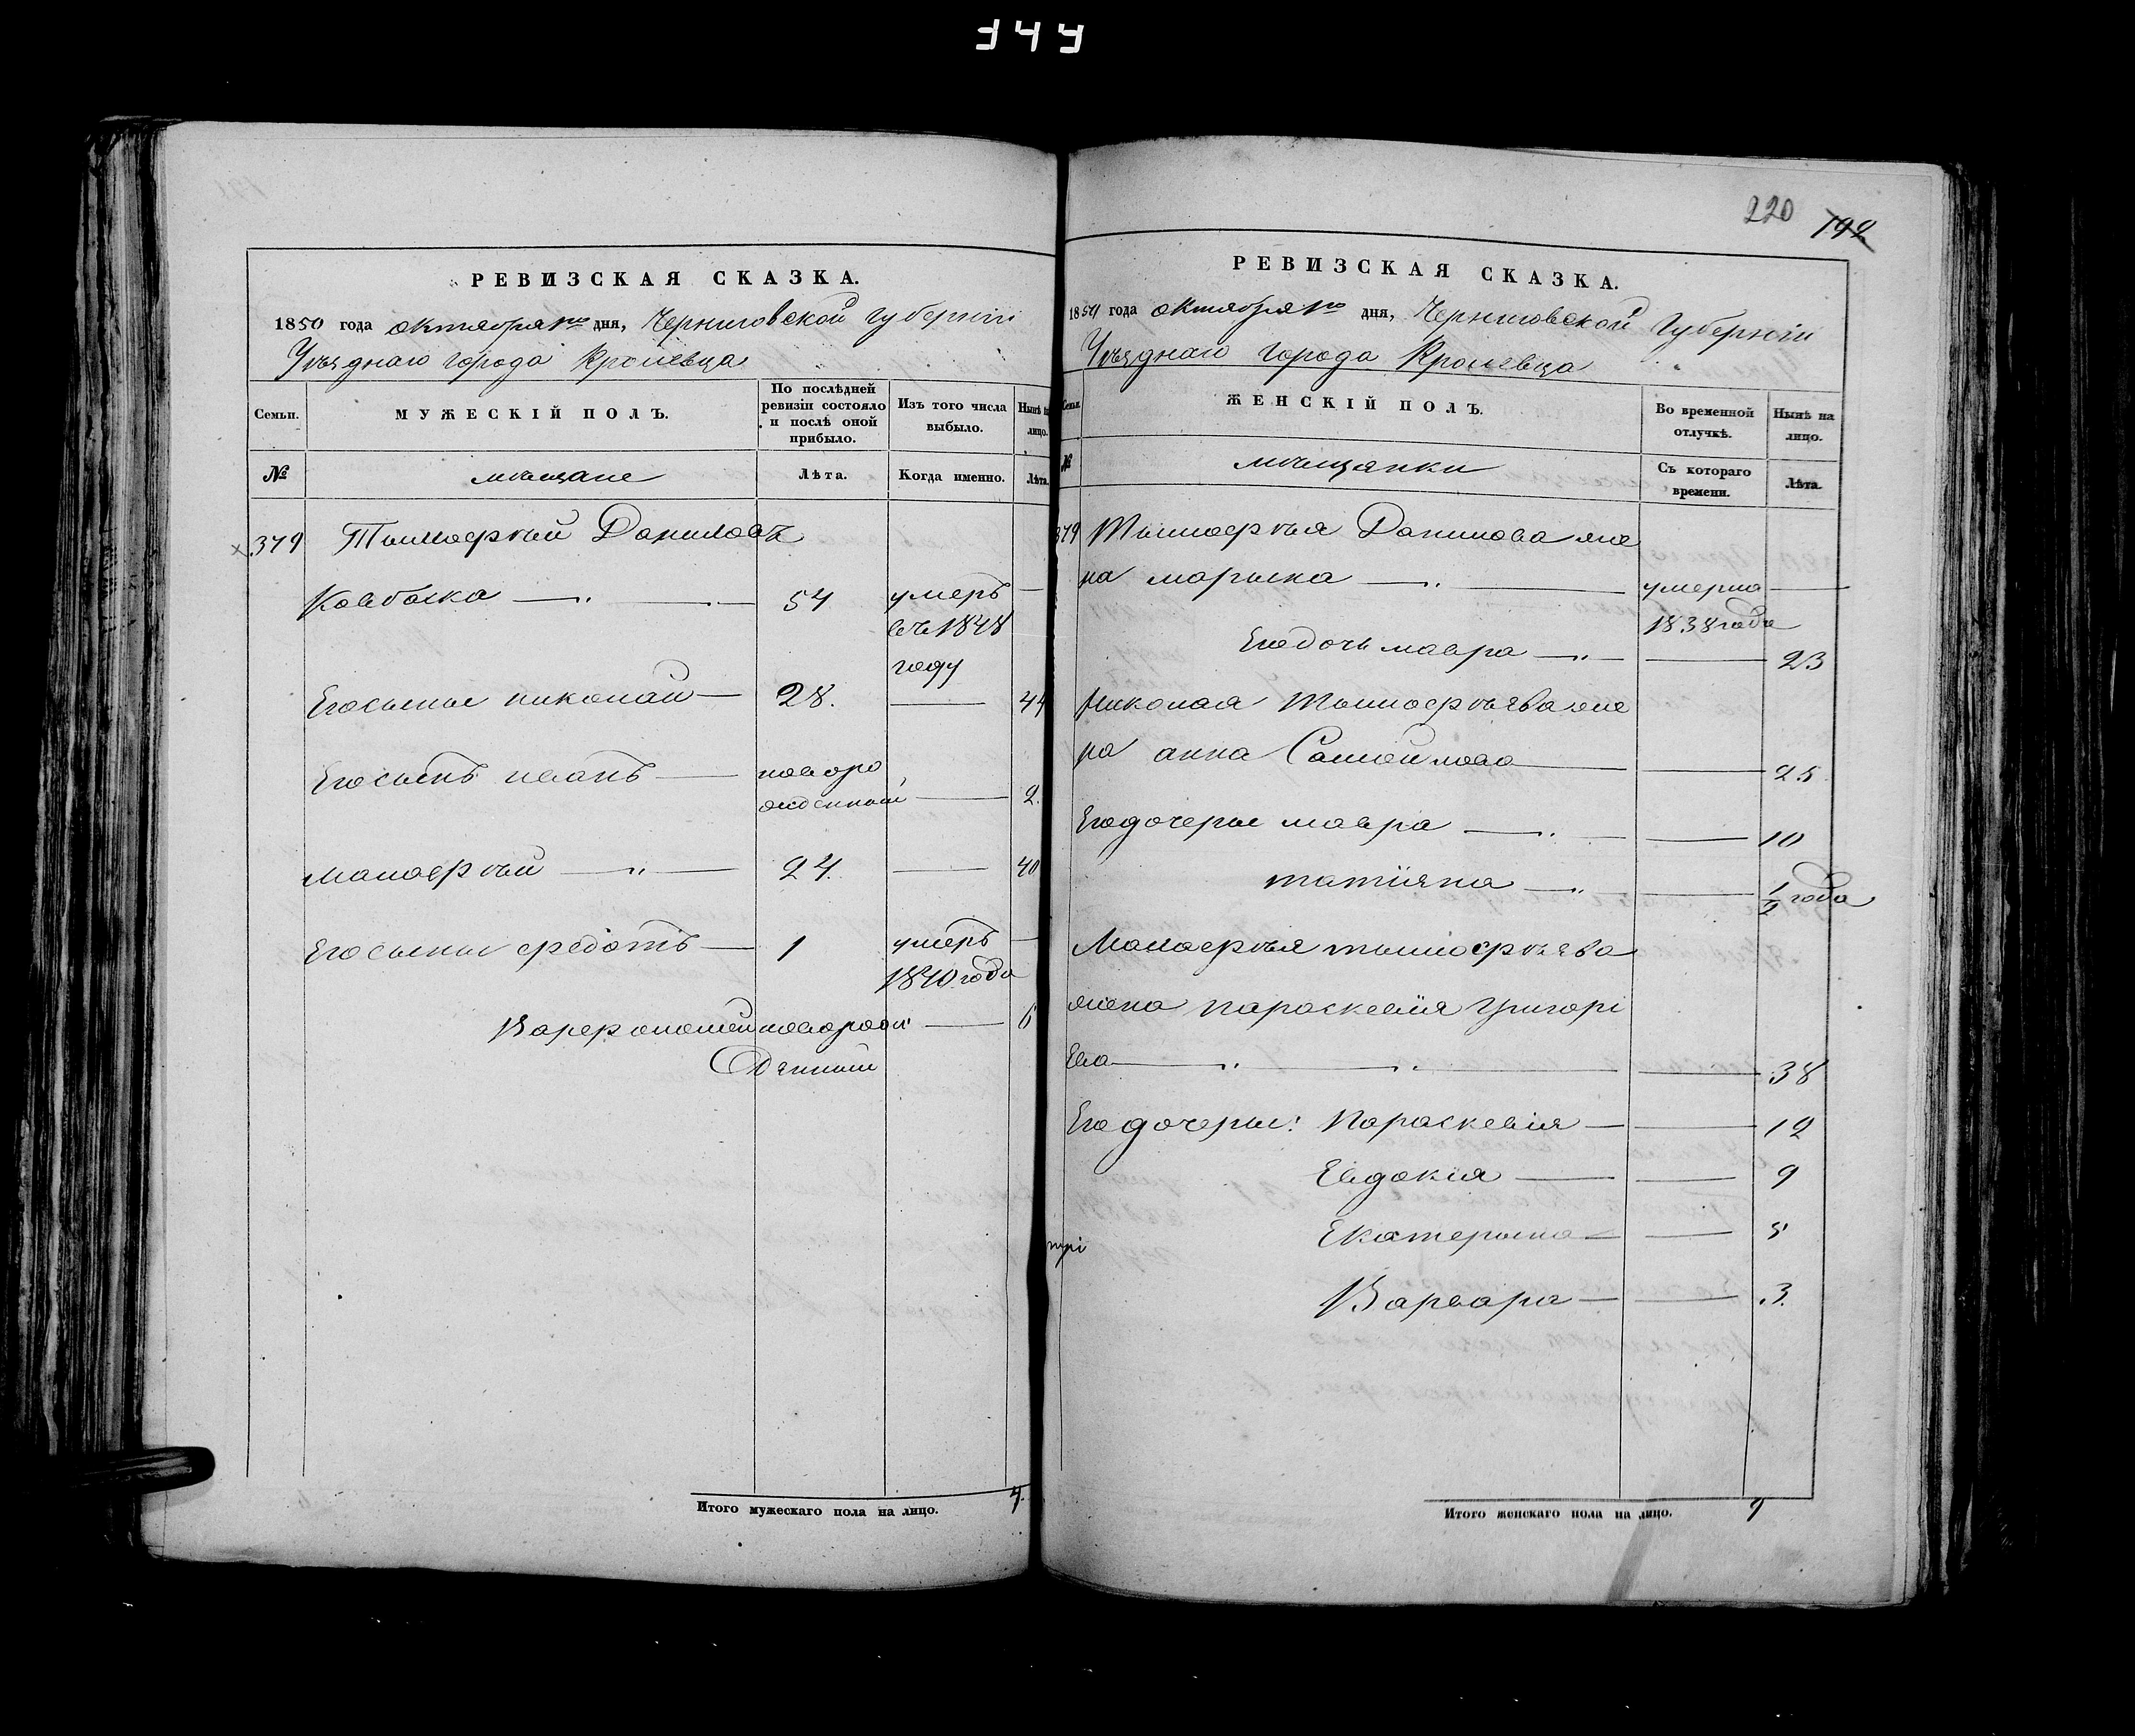 220 192
РЕВИЗСКАЯ СКАЗКА.
1850 года октября 1го дня, Черниговской губернiи
Уѣзднаго города Кролевца
Семьи. МУЖЕСКIЙ ПОЛЪ. По послѣдней ревизiи состояло и послѣ оной прибыло. Изъ того числа выбыло. Нынѣ на лицо.
№ мѣщане Лѣта. Когда именно. Лѣта.
379 Тымофѣй Даниловъ
Ковбаска 54 умеръ
въ 1848
году
Его сыны николай 28. 44
Его сынъ иванъ новоро
жденный 2.
Манофѣй 24. 40
Его сыны федотъ 1 умеръ
1840 года
Варфоломей новорож
денный 6
Итого мужескаго пола на лицо. 4.
РЕВИЗСКАЯ СКАЗКА.
1850 года октября 1го дня, Черниговской Губернiи
Уѣзднаго города Кролевца
Семьи. ЖЕНСКIЙ ПОЛЪ. Во временной отлучкѣ. Нынѣ на лицо.
№ мѣщанки Съ котораго времени. Лѣта.
379 Тымофѣя Данилова же
на марына умерла
1838 года
Его дочь мавра 23
Николая Тымофѣева же
на анна Самойлова 25
Его дочеры мавра 10
татiяна 1/2 года
Манофѣя тымофѣева
жена параскевiя Григорi
Ева 38
Его дочеры: Параскевiя 12
Евдокiя 9
Екатерына 5
Варвара 3.
Итого женскаго пола на лицо. 9